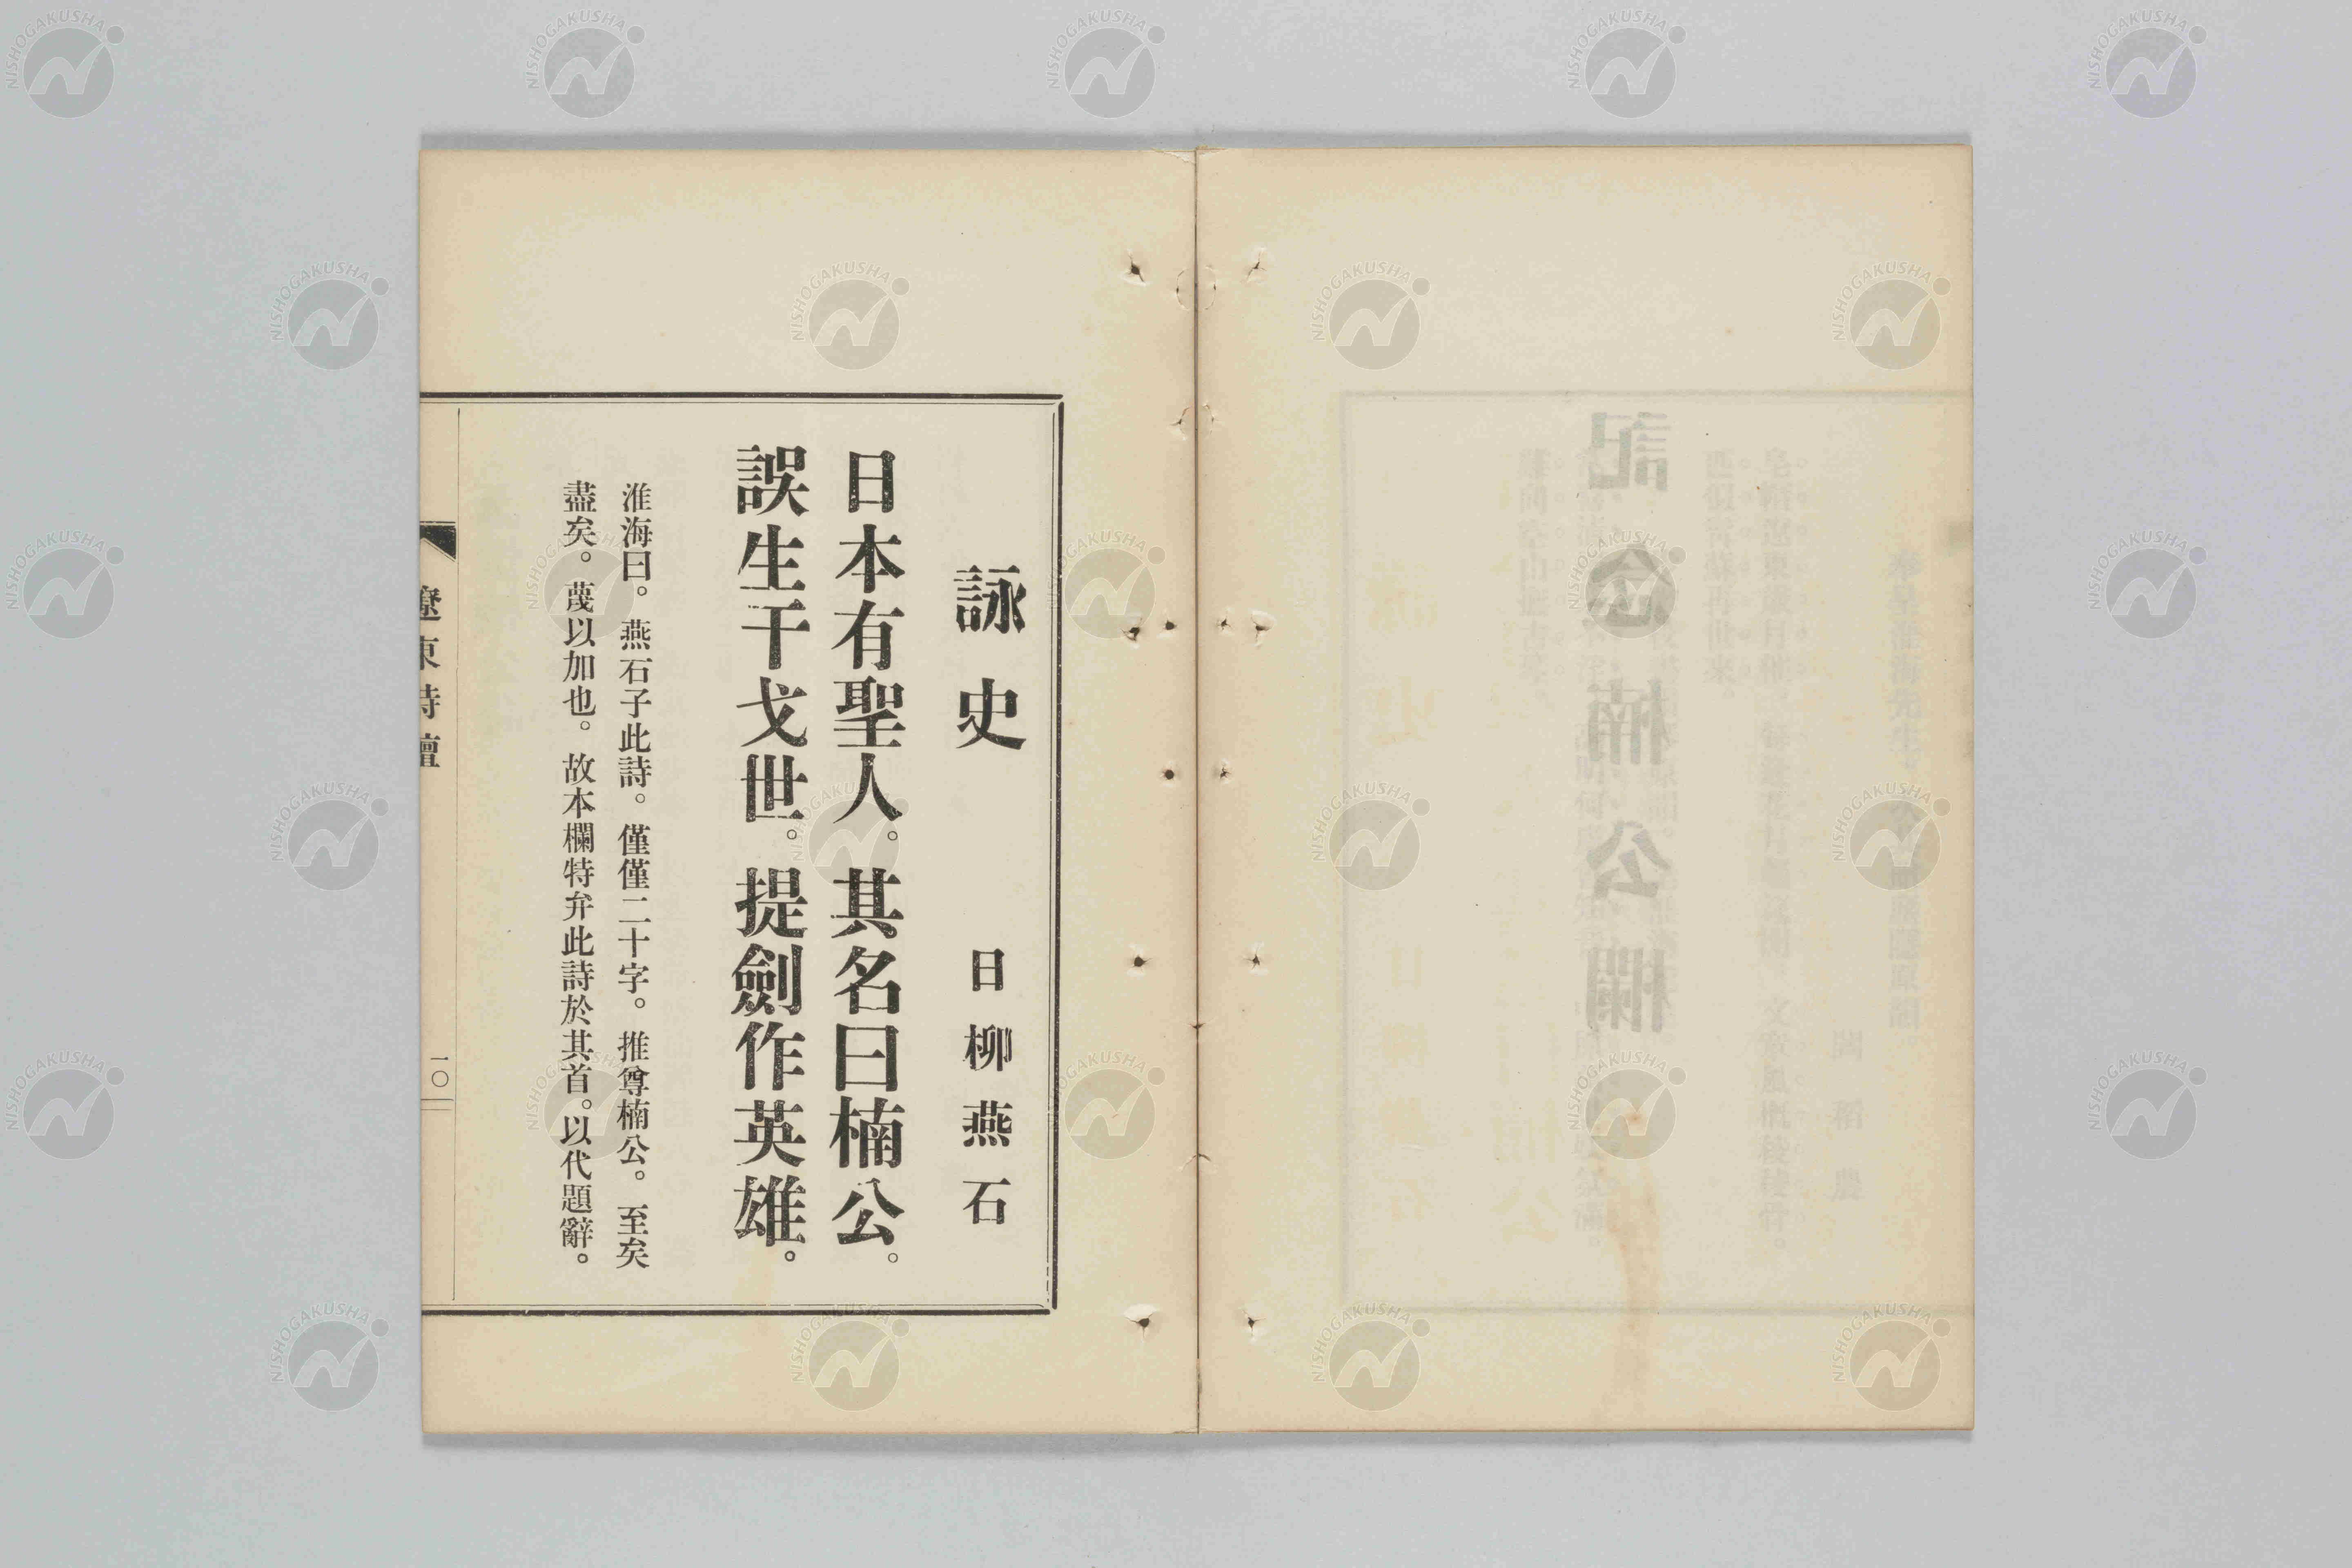 詠史 日柳燕石
日本有聖人。其名曰楠公。
誤生干戈世。提劍作英雄。
淮海曰。燕石子此詩。僅僅二十字。推尊楠公。至矣
盡矣。蔑以加也。故本欄特弁此詩於其首。以代題辭。
遼東詩壇
一〇
記念楠公欄
NISHOGAKUSHA